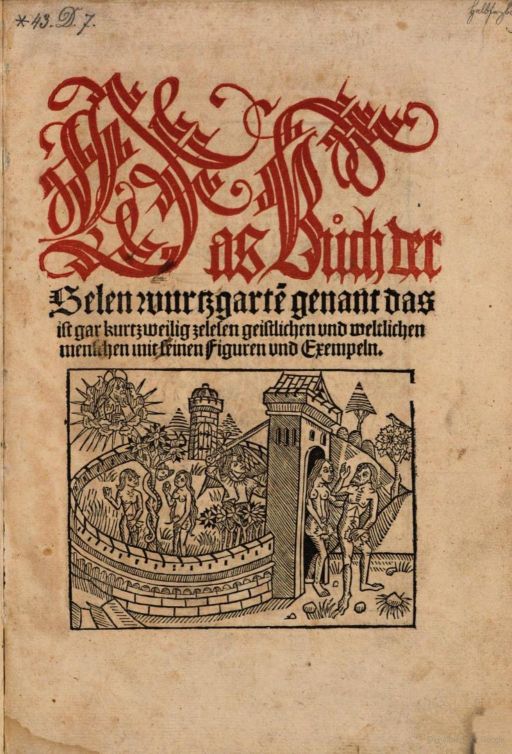 *43. D. 7.
Das Bůch der
Selen wurtzgartē genant das
ist gar kurtzweilig zelesen geistlichen vnd weltlichen
menschen mit seinen Figuren vnd Exempeln.